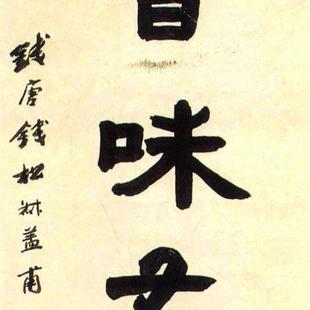 味
錢唐錢松叔盖甫